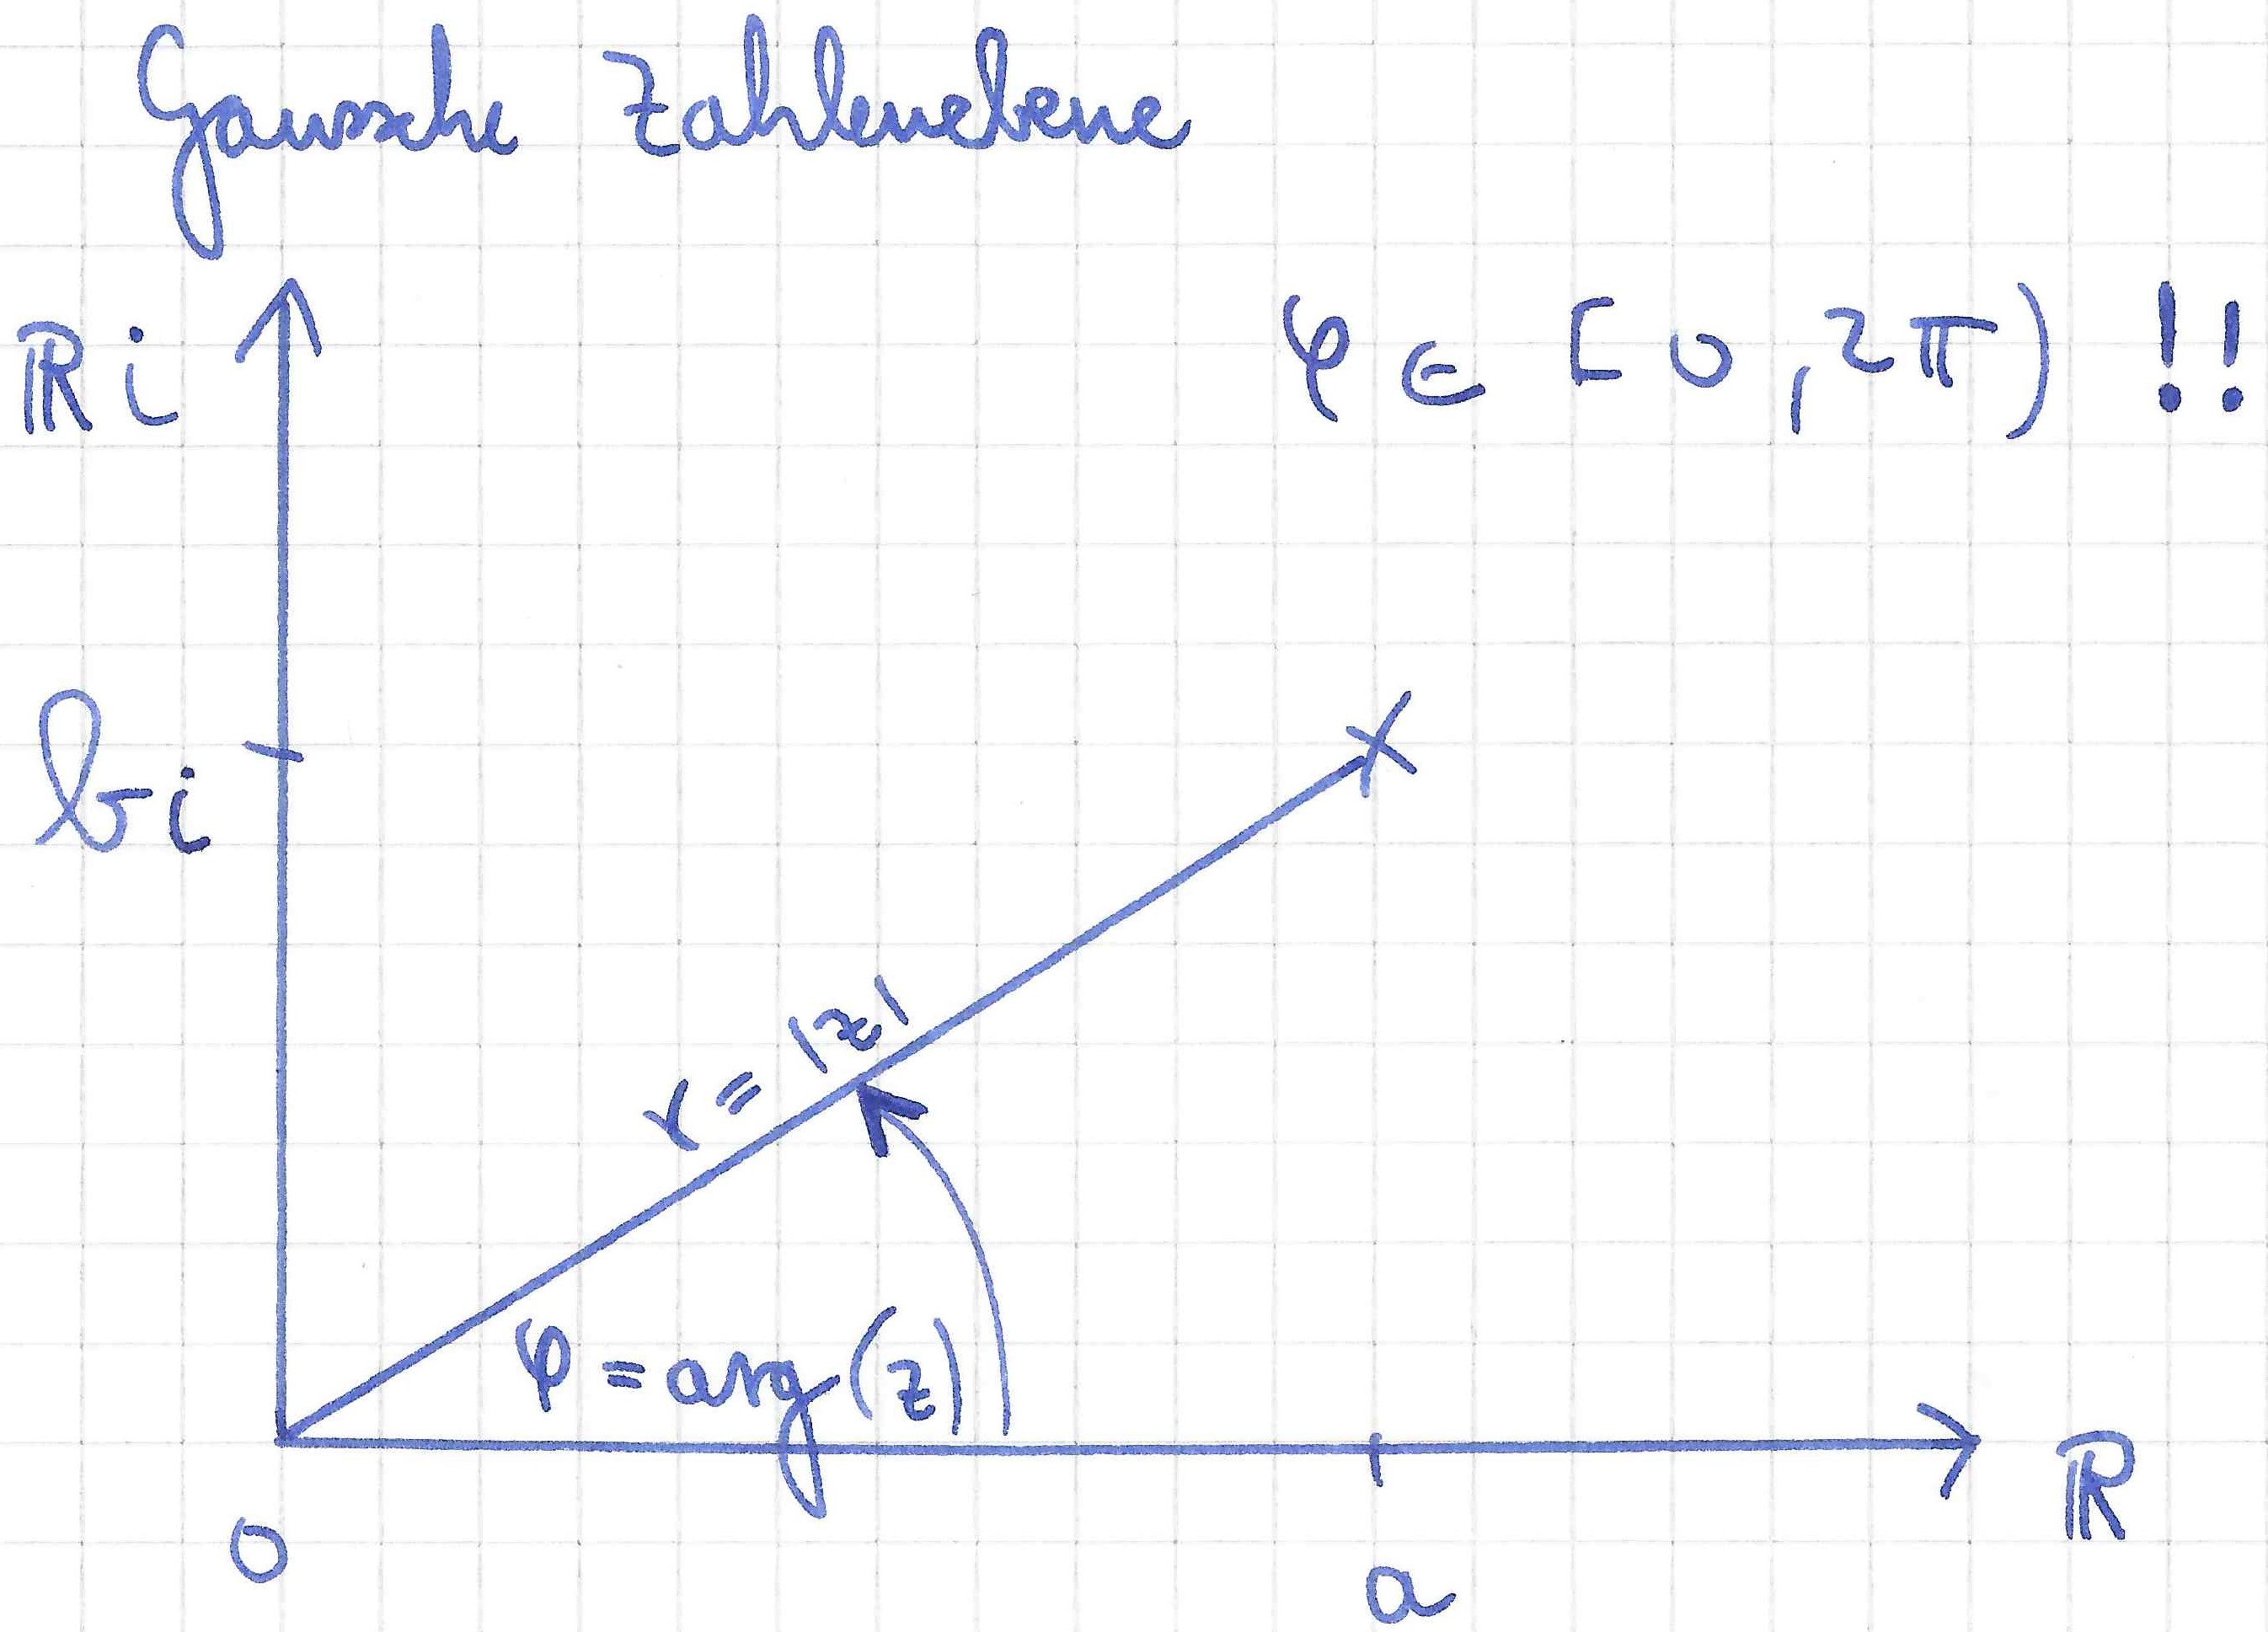 Gaussche Zahlenebene
ℝi
φ ∈ [0, 2π) !!
bi
r = |z|
φ = arg(z)
ℝ
0
a